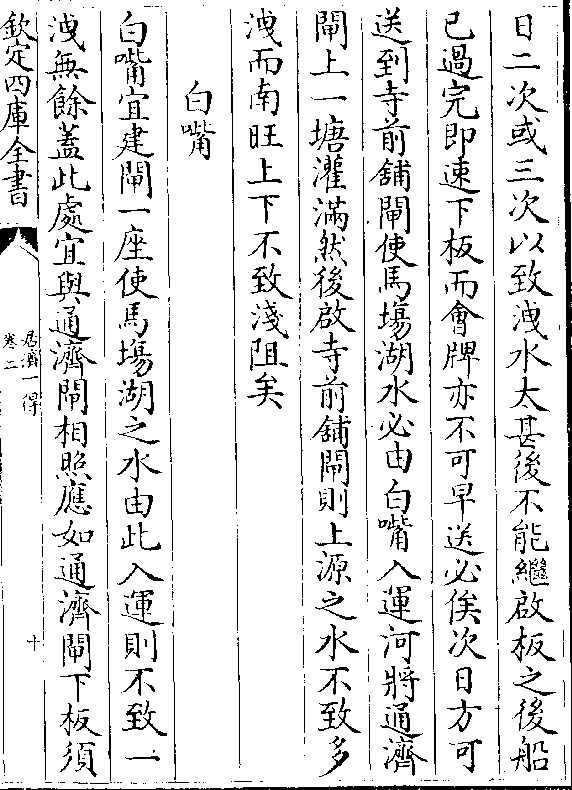 日二次或三次以致洩水太甚後不能繼啟板之後船
已過完即速下板而會牌亦不可早送必俟次日方可
送到寺前舖閘使馬塲湖水必由白嘴入運河將通濟
閘上一塘灌滿然後啟寺前舖閘則上源之水不致多
洩而南旺上下不致淺阻矣
白嘴
白嘴宜建閘一座使馬塲湖之水由此入運則不致一
洩無餘蓋此處宜與通濟閘相照應如通濟閘下板須
欽定四庫全書
居濟一得
卷二
十